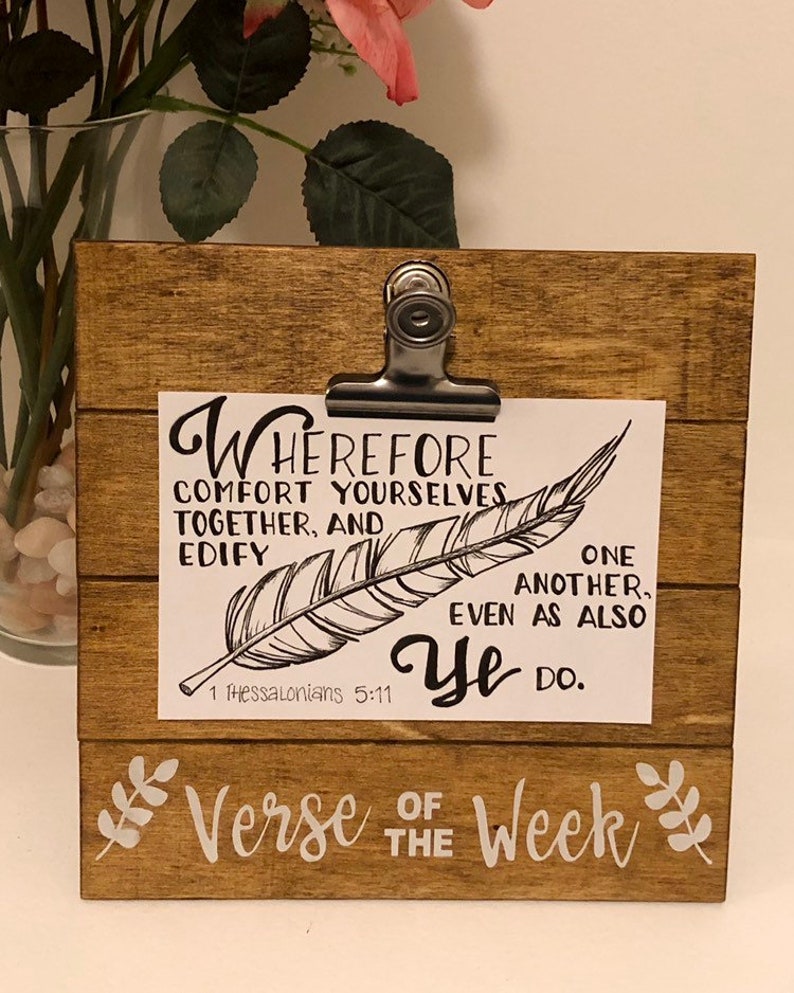 WHEREFORE
COMFORT YOURSELVES
TOGETHER, AND
EDIFY ONE
ANOTHER,
EVEN AS ALSO
Ye DO.
1 Thessalonians 5:11
Verse OF THE Week